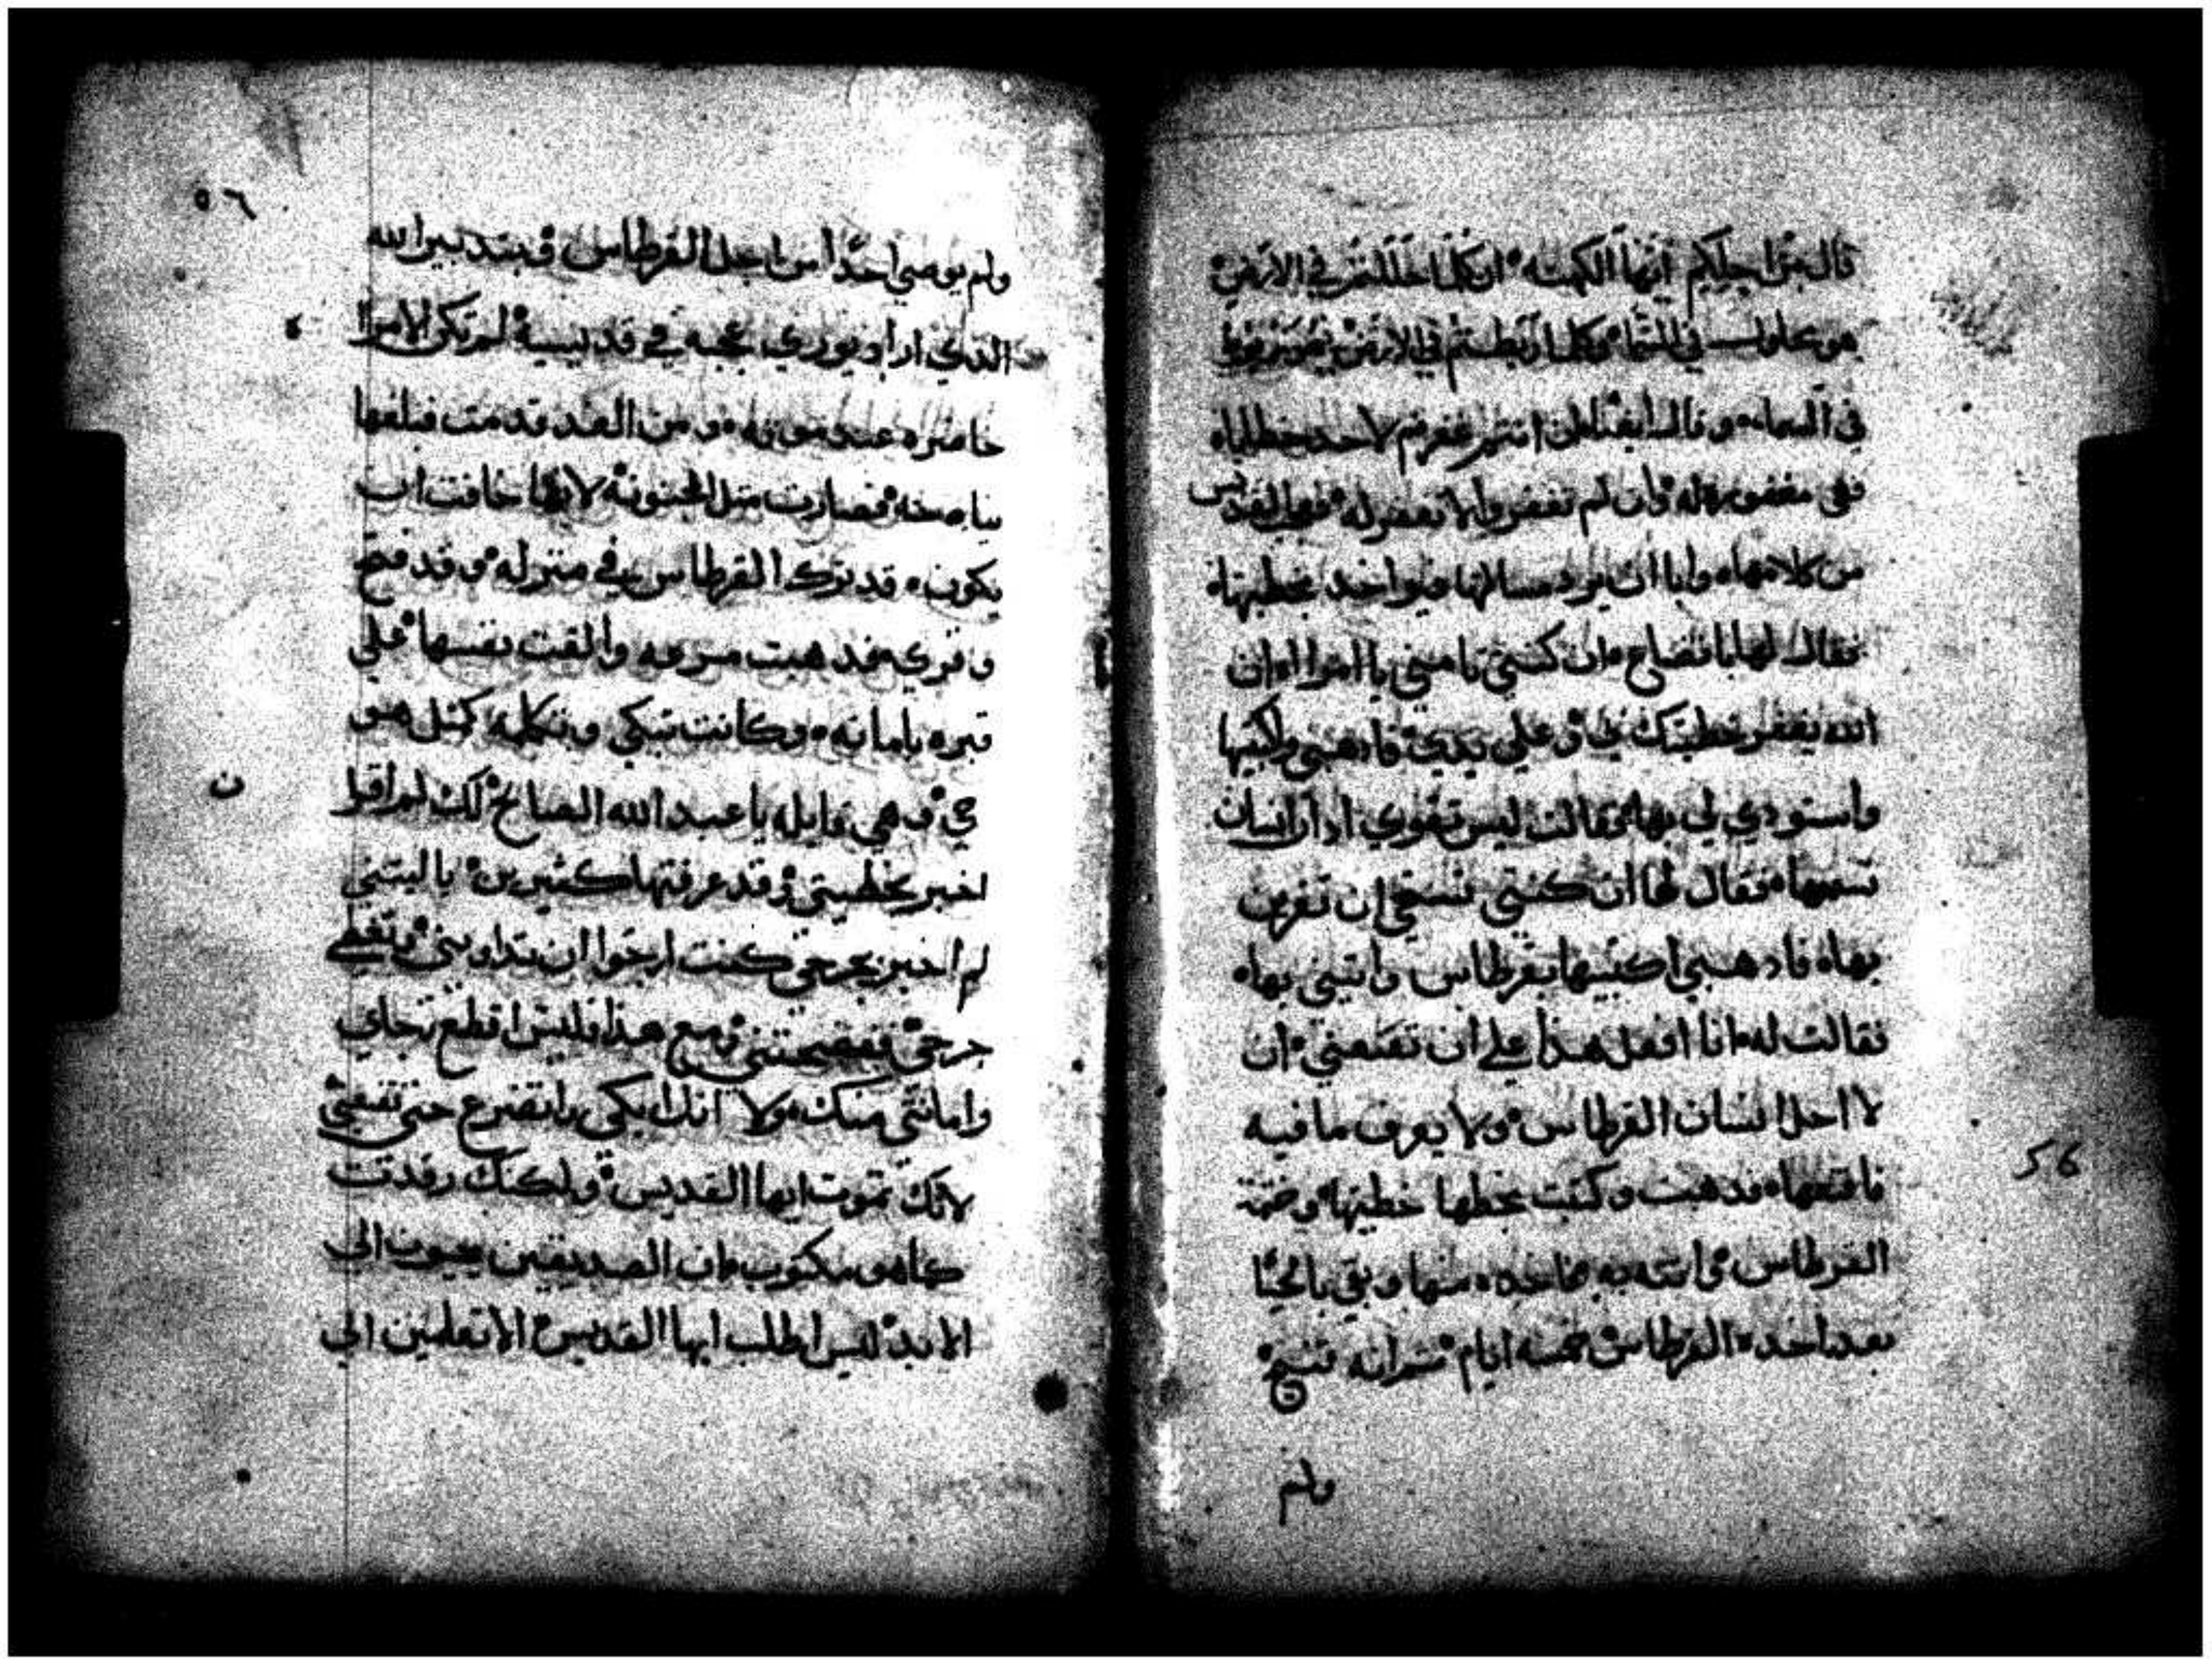 قال من اجلكم ايها الكهنه ان كلما حللتم في الارض
هو محلول في السما وكلما ربطتم في الارض يكون مربوط
في السماء وقال ايضا ان انتم غفرتم لاحد خطاياه
فهي مغفوره له وان لم تغفروا لا تغفر له فعجب القديس
من كلامها وابا ان يرد مسالتها فيواخد بخطيتها
فقال لها باتضاع ان كنتي تامني يا امراه ان
الله يغفر خطيتك لي وعلي يدي فادهبي واكتبيها
واستودي لي بها وقالت ليس تقوي ادان انسان
تسمعها فقال لها ان كنتي تستحي ان تقرين
بها فادهبي اكتبيها بقرطاس واتيني بها
فقالت له انا افعل هذا علي ان تقنعني ان
لا احل انسان القرطاس ولا يعرف ما فيه
فاقنعها فدهبت وكتبت بخطها خطيتها وختمة
القرطاس واتته به فاخده منها وبقي بالحيا
بعد اخده القرطاس خمسه ايام ثم انه تنيح
ولم
٥٦
ولم يوصي احدا من اجل القرطاس وبتدبير الله
الذي اراد يوري عجبه في قديسيه لم تكن الامراه
حاضره عند موته ومن الغد قدمت فبلغها
نياحته فصارت متل المجنونه لانها خافت ان
يكون قد ترك القرطاس في منزله وقد فتح
وقري فدهبت مسرعه والقت نفسها علي
قبره بامانه وكانت تبكي وتتكلم كمتل هو
حي وهي قايله يا عبد الله الصالح لك لم اقدر
اخبر بخطيتي وقد عرفتها كثيرين ياليتني
لم اخبر بجرحي كنت ارجوا ان تداويني وتغطي
جرحي ففضحتني ومع هذا فليس اقطع رجاي
وامانتي منك ولا انك ابكي واتضرع حتي تقنعني
لانك تموت ايها القديس ولكنك رقدت
كما هو مكتوب ان الصديقين يحيون الي
الابد ليس اطلب ايها القديس الا تعلمين الي
56